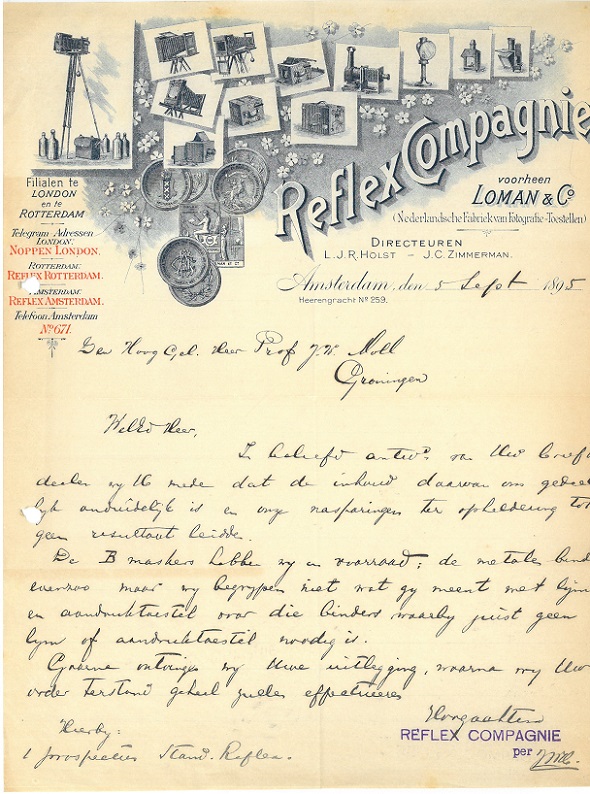 Reflex Compagnie
voorheen
LOMAN & Co
(Nederlandsche Fabriek van Fotografie-Toestellen)
DIRECTEUREN
L.J.R. HOLST – J.C. ZIMMERMAN.
Filialen te
LONDON
en te
ROTTERDAM
Telegram-Adressen
LONDON:
NOPPEN LONDON.
ROTTERDAM:
REFLEX ROTTERDAM.
AMSTERDAM:
REFLEX AMSTERDAM.
Telefoon Amsterdam
No 671.
Amsterdam, den 5 Sept 1895
Heerengracht No 259.
Den Hoog Gel. Heer Prof J.W. Moll
Groningen
WelEd Heer,
In beleefd antw. van Uw brief
deelen wy U mede dat de inhoud daarvan ons gedeel
lyk onduidelijk is en onze nasporingen ter opheldering tot
geen resultaat leidde.
De B maskers hebben wy in voorraad; de metalen bind
evenzoo maar wy begrypen niet wat gy meent met lym
en aandruktoestel voor die binders waarby juist geen
lym of aandruktoestel noodig is.
Gaarne ontvingen wy Uwe uitlegging, waarna wy Uw
order terstond geheel zullen effectueeren
Hoogachtend
REFLEX COMPAGNIE
per
Hierby:
1 prospectus Stand. Reflex.